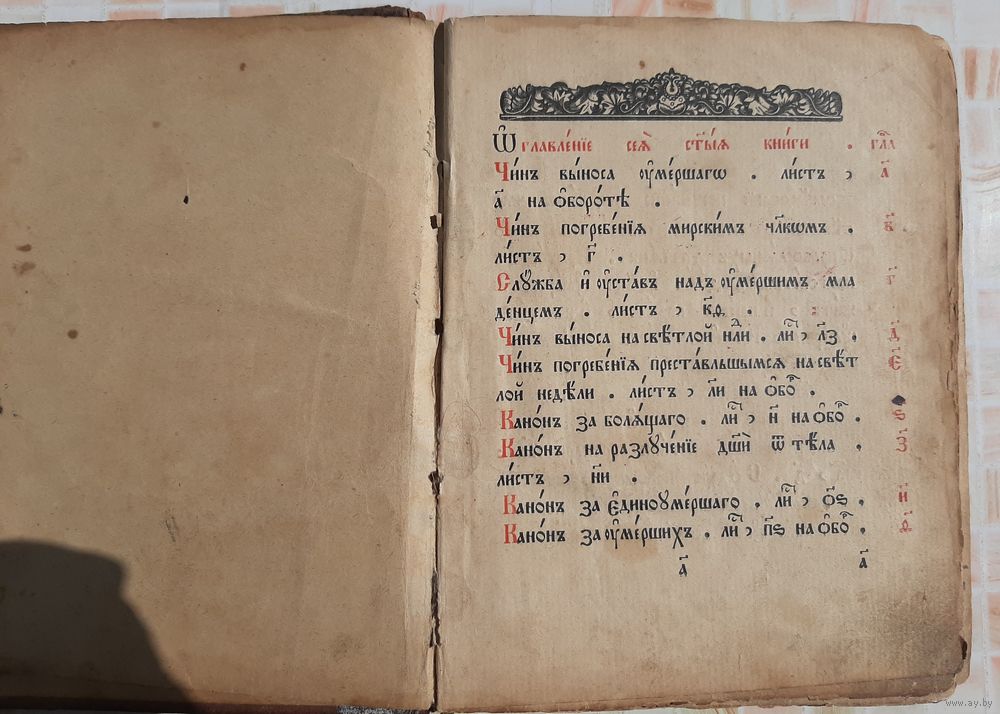 Ѡ҆главле́нїе сеѧ̀ ст҃ы́ѧ кни́ги . гл҃а
Чи́нъ вы́носа ᲂу҆ме́ршагѡ . ли́стъ , а҃
а҃ на ѻ҆боро́тѣ .
Чи́нъ погребе́нїѧ мирски́мъ чл҃кѡмъ . в҃
ли́стъ , г҃ .
Слꙋ́жба и҆ ᲂу҆ста́въ надъ ᲂу҆ме́ршимъ мла г҃
де́нцемъ . ли́стъ ,
Чи́нъ вы́носа на свѣ́тлой нд҃ли . ли́ , л҃з . д҃
Чи́нъ погребе́нїѧ преста́вльшымсѧ на свѣ́т є҃
лой недѣ́ли . ли́стъ , л҃и на ѻ҆бо .
Кано́нъ за болѧ́щаго . ли́ , н҃ на ѻ҆бо . ѕ҃
Кано́нъ на разлꙋче́нїе дш҃ѝ ѿ тѣ́ла , з҃
ли́стъ , н҃и .
Кано́нъ за є҆диноꙋме́ршаго . ли́ , ѻ҃ѕ . и҃
Кано́нъ за ᲂу҆ме́ршихъ . ли́ , п҃ѕ на ѻ҆бо . ѳ҃
а҃ а҃
www.ay.by